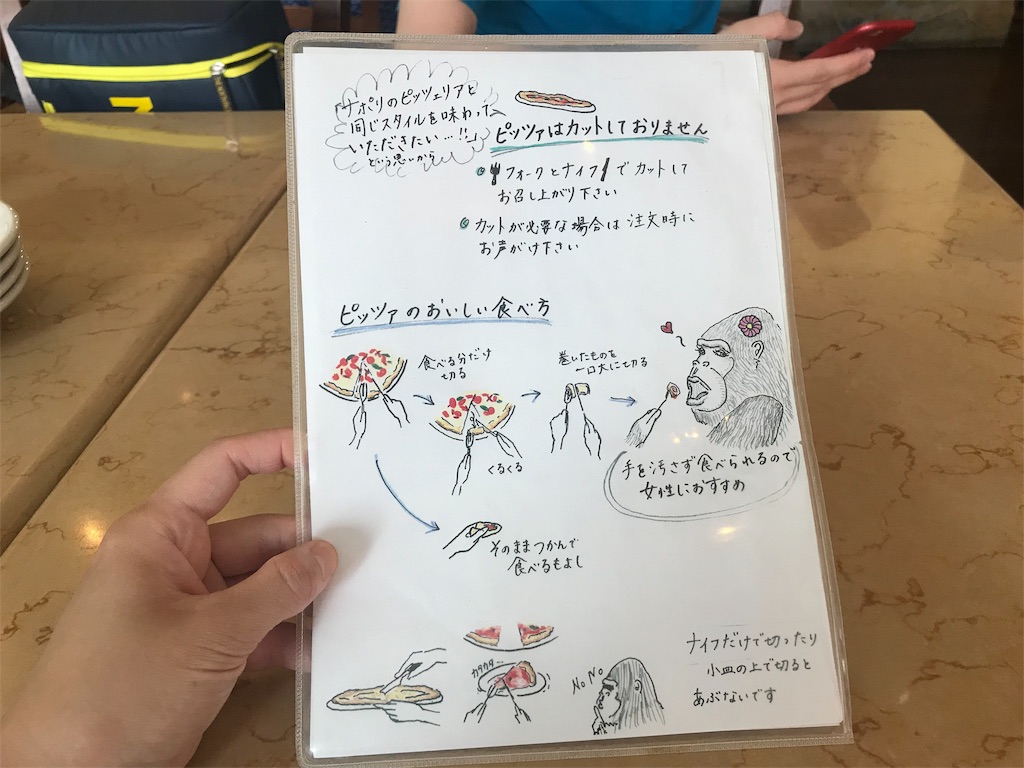 「ナポリのピッツェリアと
同じスタイルを味わって
いただきたい…!!」
という思いから
ピッツァはカットしておりません
フォークとナイフでカットして
お召し上がり下さい
カットが必要な場合は注文時に
お声がけ下さい
ピッツァのおいしい食べ方
食べる分だけ
切る
くるくる
巻いたものを
一口大に切る
手を汚さず食べられるので
女性におすすめ
そのままつかんで
食べるもよし
カタカタ…
NO NO
ナイフだけで切ったり
小皿の上で切ると
あぶないです